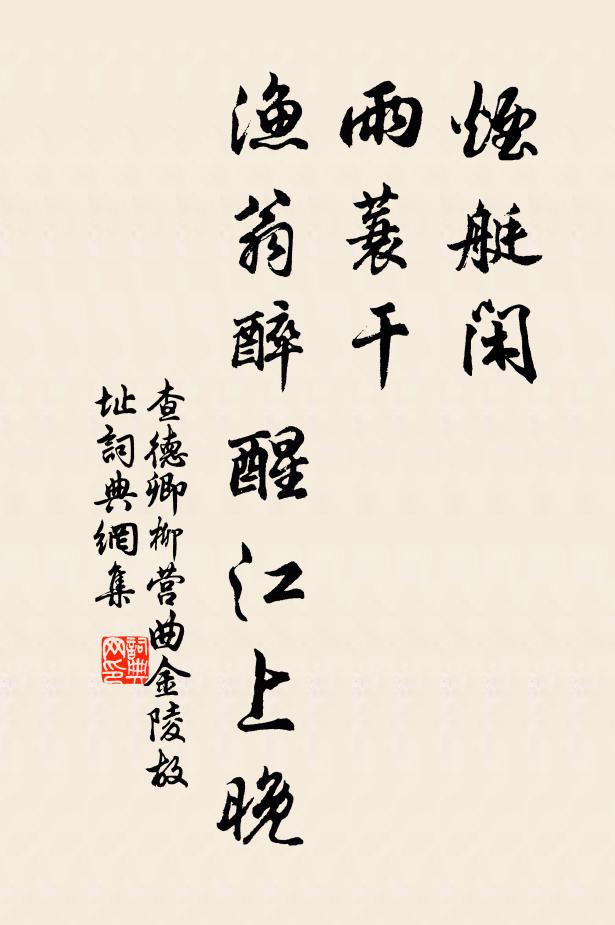 煙艇闲
雨蓑干
渔翁醉醒江上晚
查德卿柳营曲金陵故
址詞典網集
詞典
网印